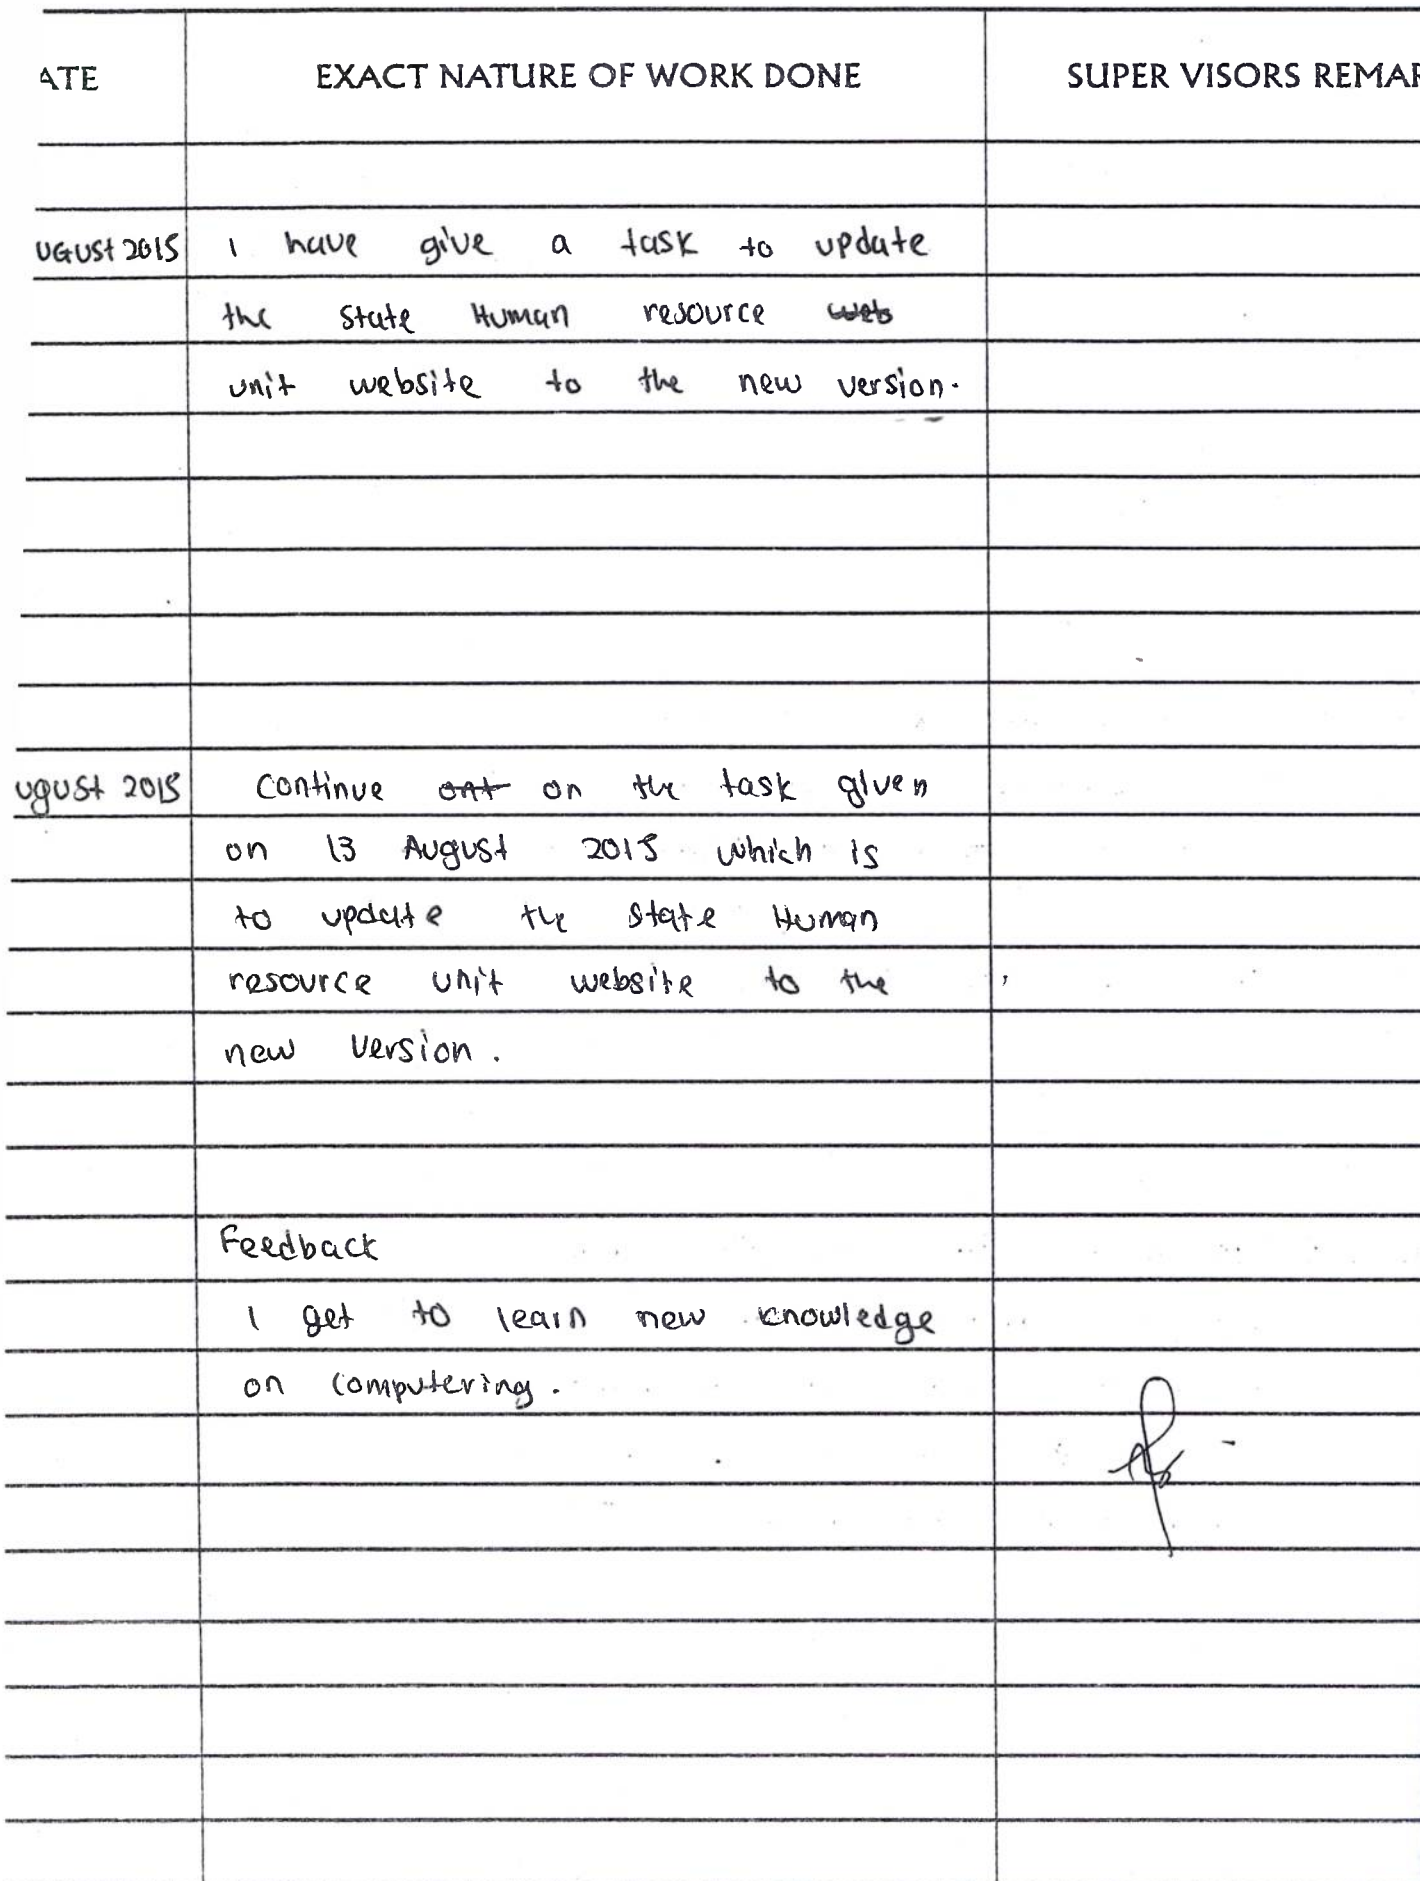 ATE EXACT NATURE OF WORK DONE SUPER VISORS REMAR
UGUST 2015 I have give a task to update
the State Human resource
unit website to the new version.
ugust 2015 Continue on the task given
on 13 August 2015 which is
to update the State Human
resource unit website to the
new version.
Feedback
I get to learn new knowledge
on computering.